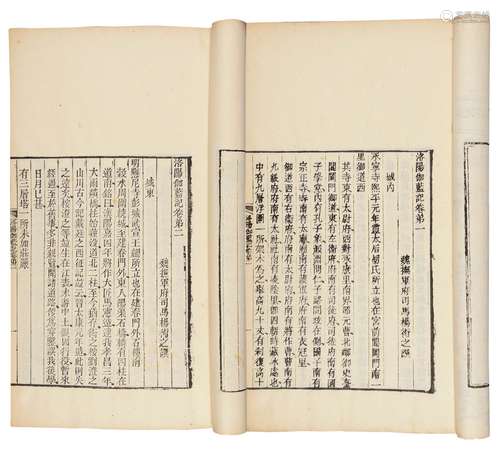 洛陽伽藍記卷第一
魏撫軍府司馬楊衒之撰
城内
永寧寺熙平元年靈太后胡氏所立也在宮前閶闔門南一
里御道西
其寺東有太尉府西對永康里南界昭玄曹北鄰御史臺
閶闔門前御道東有左衛府府南有司徒府司徒府南有國
子學堂内有孔丘像顏淵問仁子路問政在側國子南有
宗正寺寺南有太廟廟南有護軍府府南有衣冠里
御道西有右衛府府南有太尉府府南有將作曹曹南有
九級府府南有太社社南有凌陰里即四朝時藏氷處也
中有九層浮圖一所架木為之舉高九十丈有刹復高十
洛陽伽藍記卷第二
魏撫軍府司馬楊衒之撰
城東
明懸尼寺彭城武宣王勰所立也在建春門外石樓南
穀水周圍繞城至建春門外東入陽渠石橋橋有四柱在
道南銘云漢陽嘉四年將作大匠馬憲造逮我孝昌三年
大雨頹橋柱始埋没道北二柱至今猶存衒之按劉澄之
山川古今記戴延之西征記並云晉太康元年造此則失
之遠矣按澄之等並生在江表未遊中土假因征役暫來
經過至於舊事多非親覽聞諸道路便為穿鑿誤我後學
日月已甚
有三層塔一所未加莊嚴